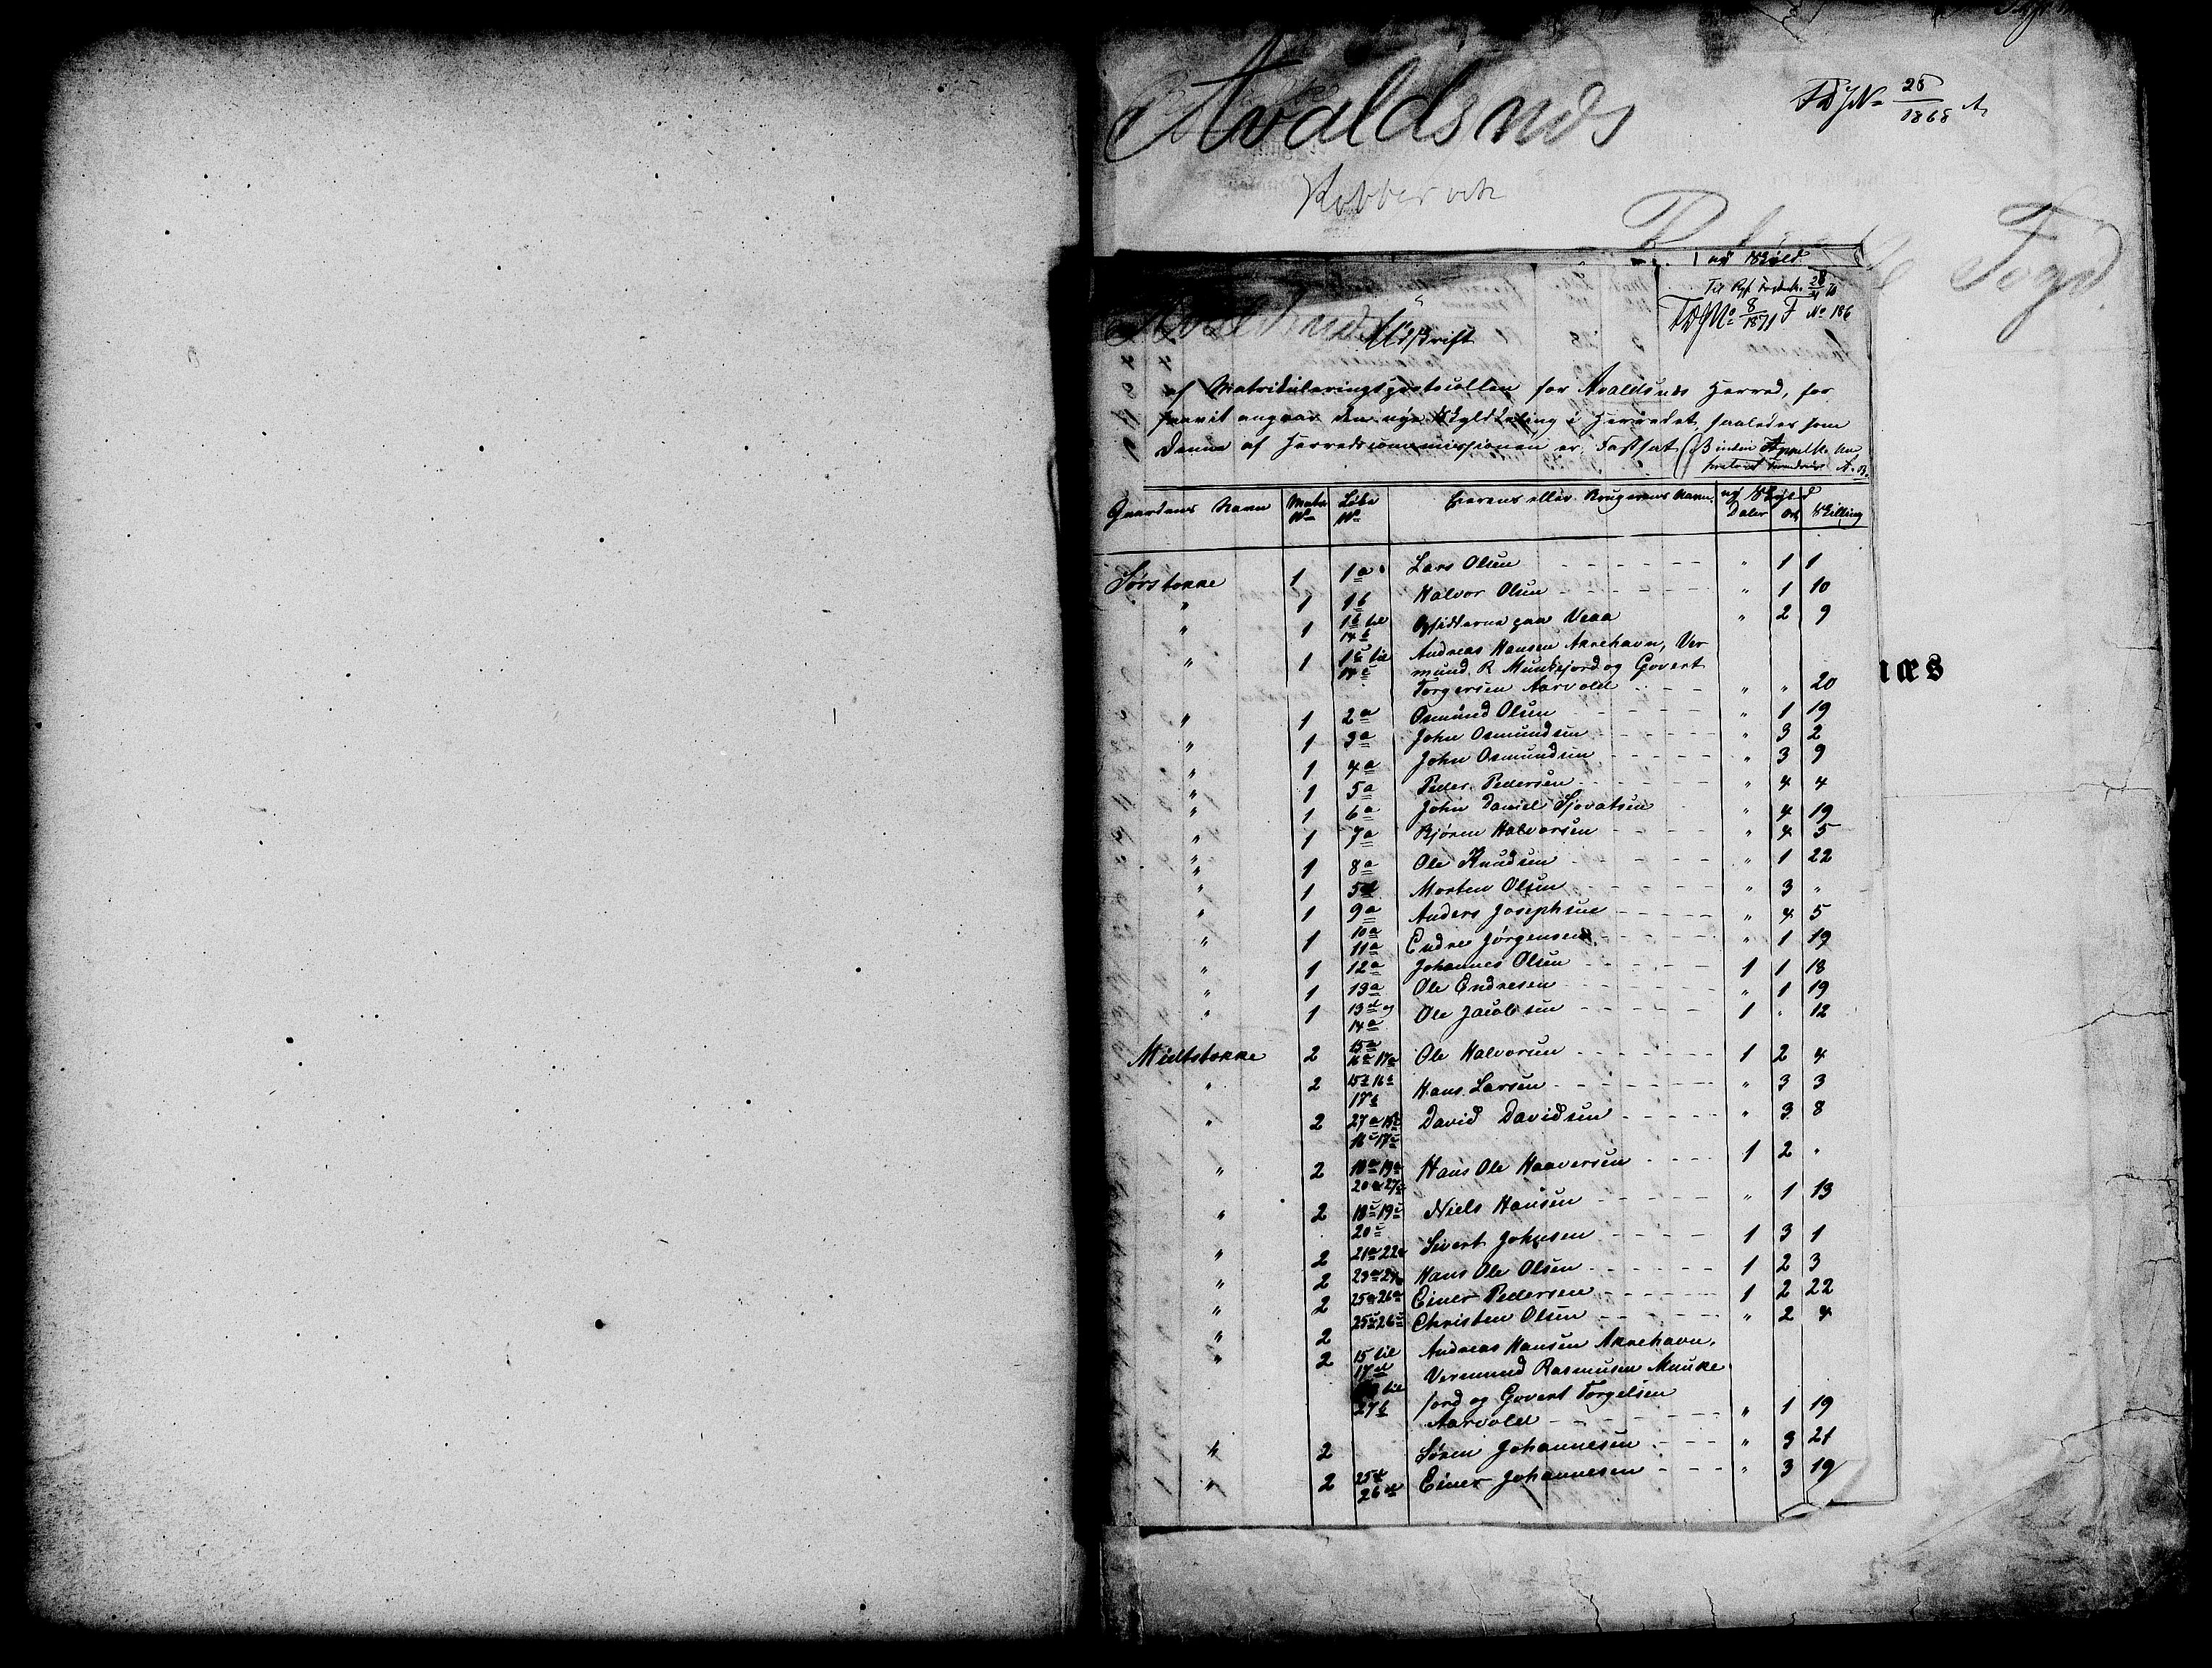 Avaldsnæs
FDJ No 25/1868 A
Fogd.
ny Skyld
FDJ No 8/1871 F No 186
Udskrift
af Matrikuleringsprotocollen for Avaldsnæs Herred, for
saavit angaar den nye Skylddeling i Herredet, saaledes som
denne af Herredscommissionen er fastsat
Gaardens Navn Matr No Løbe No Eierens eller Brugerens Navn ny Skyld
Daler Ort Skilling
Sørstokke 1 1a Lars Olsen " 1 1
" 1 1b Halvor Olsen " 1 10
" 1 1b til 14b Opsidderne paa Veaa " 2 9
" 1 1c til 14c Andreas Hansen Akrehavn, Ver
mund R. Munkejord og Govert
Torgersen Aarvold " " 20
" 1 2a Osmund Olsen " 1 19
" 1 3a John Osmundsen " 3 2
" 1 4a John Osmundsen " 3 9
" 1 5a Peder Pedersen " 4 4
" 1 6a John Daniel Sjovatsen " 4 19
" 1 7a Bjørn Halvorsen " 4 5
" 1 8a Ole Knudsen " 1 22
" 1 5d Morten Olsen " 3 "
" 1 9a Anders Josephsen " 4 5
" 1 10a 11a Endre Jørgensen " 1 19
" 1 12a Johannes Olsen 1 1 18
" 1 13a Ole Endresen " 1 19
" 1 13d og 14a Ole Jacobsen 1 " 12
Midtstokke 2 15a 16a 17a Ole Halvorsen 1 2 4
" 2 15b 16b 17b Hans Larsen " 3 3
" 2 27a 15c 16c 17c David Davidsen " 3 8
" 2 18a 19a 20a 27c Hans Ole Haaversen 1 2 "
" 2 18c 19c 20c Niels Hansen " 1 13
" 2 21a 22a Sivert Johnsen 1 3 1
" 2 23a 24a Hans Ole Olsen 1 2 3
" 2 25a 26a Einer Pedersen 1 2 22
" 2 25c 26c Christen Olsen " 2 4
" 2 15 til 17d Andreas Hansen Akrehavn,
Vermund Rasmusen Munke
til 27b jord og Govert Torgelsen
Aarvold " 1 19
" 2 Søren Johannesen " 3 21
" 2 25d 26d Einer Johannesen " 3 19
næs